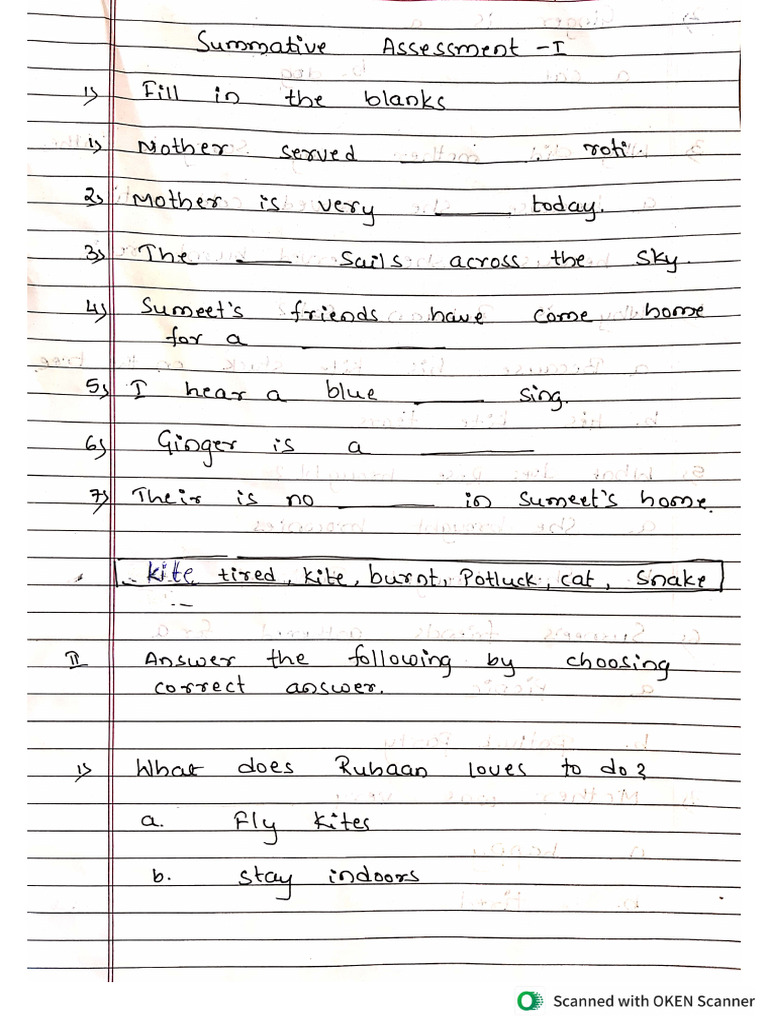 Summative Assessment - I
1) Fill in the blanks
1) Mother served ______ roti.
2) Mother is very ______ today.
3) The ______ sails across the sky.
4) Sumeet's friends have come home
for a ______
5) I hear a blue ______ sing.
6) Ginger is a ______
7) Their is no ______ in Sumeet's home.
kite tired, kite, burnt, Potluck, cat, Snake
II Answer the following by choosing
correct answer.
1) What does Ruhaan loves to do?
a. Fly kites
b. stay indoors
Scanned with OKEN Scanner